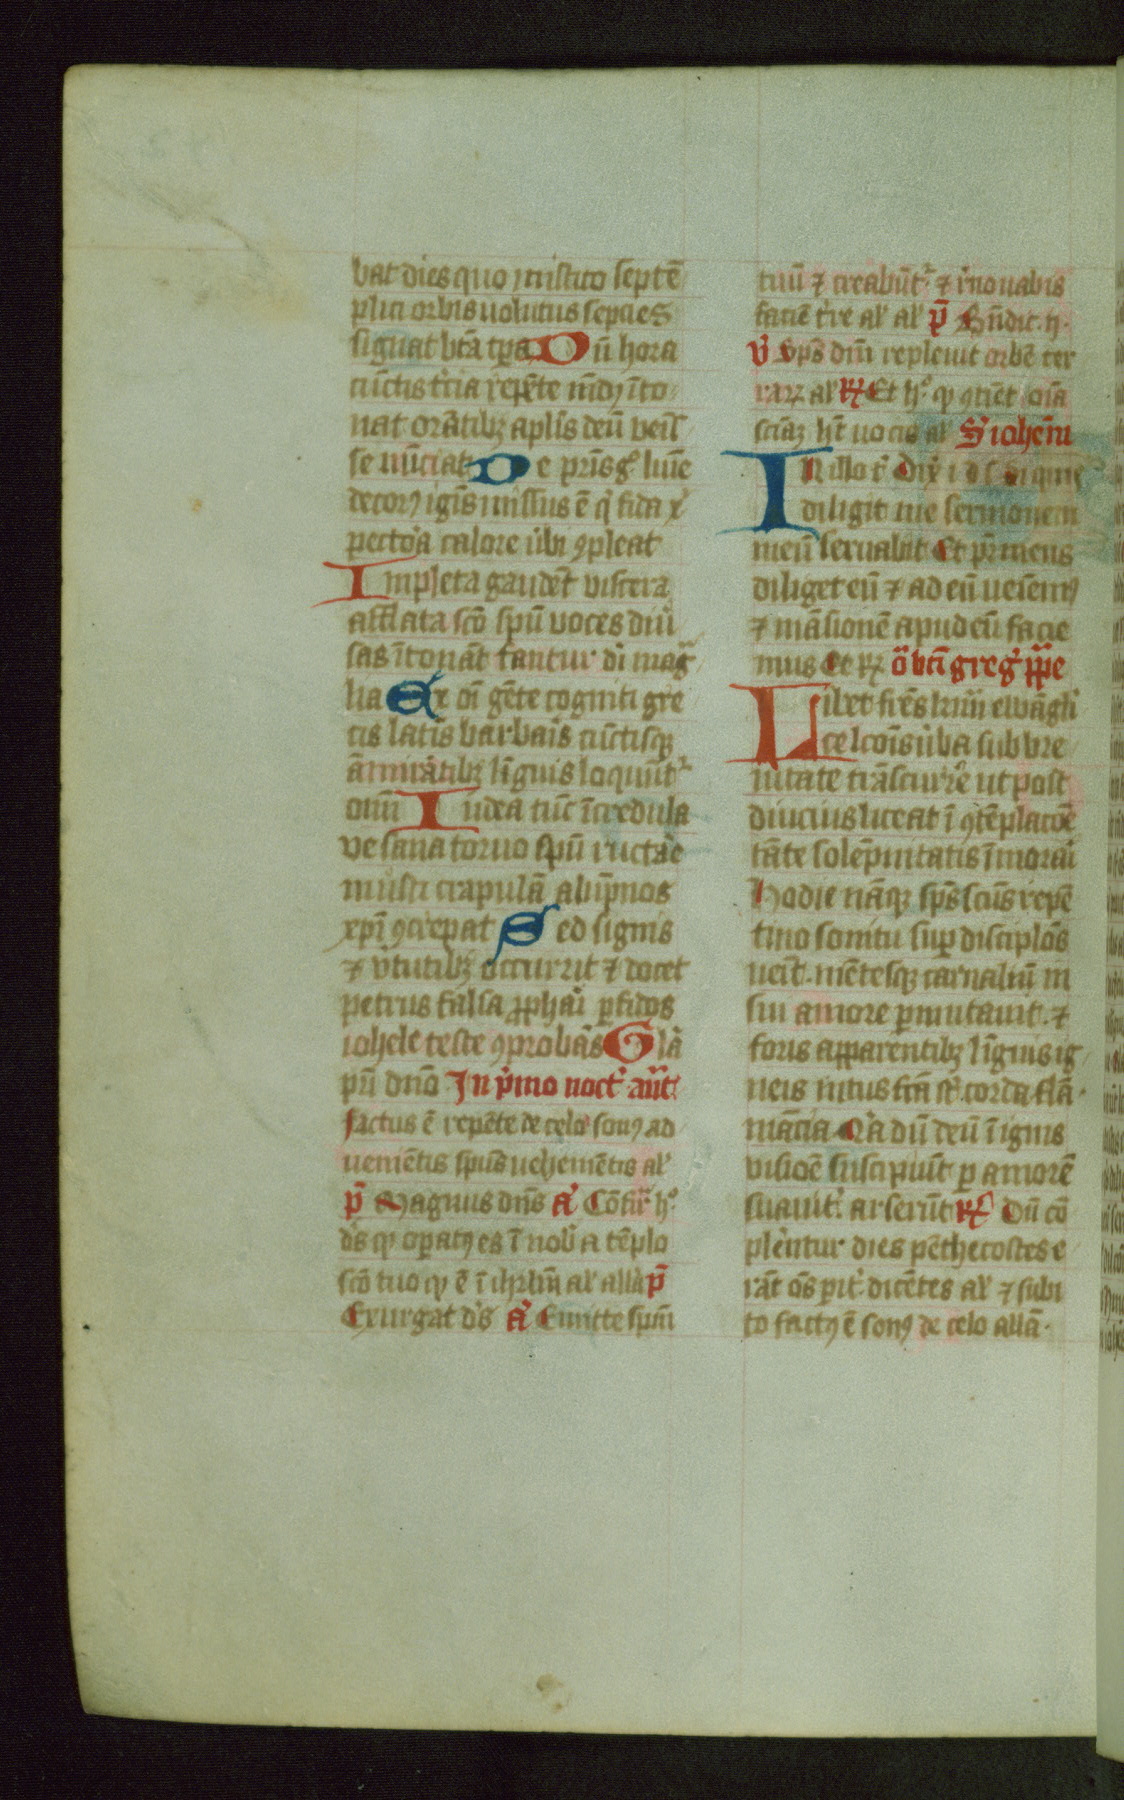 bat dies quo mistico septē
plici orbis uolutus septies
signat btā tp̄a Dū hora
cūctis t͛cia repēte mūdꝰ īto
nat orātibꝫ aplis deū veīs
se nūciat De pr̄is gͦ lumīe
decorꝰ ignis missus ē qͥ fida x͛
pectora calore ūbi ꝯpleat
Impleta gaudēt viscera
afflata scō spū voces diu͛
sas ītonāt fantur di mag͛
lia Ex oī gēte cogniti gre
cis latīs barbaīs cūctisqꝫ
āmirātibꝫ līguis loquūt᷑
oīm Iudea tūc īcredula
ve sana toruo spū ructāe
musti crapulā alūpnos
xp̄i ꝯcrepat Sed signis
⁊ v͛tutibꝫ occurrit ⁊ docet
petrus falsa ꝓphai ꝑfidos
iohele teste ꝯprobās Glā
pr̄i dnō In p͛mo noct͛ añt
factus ē repēte de celo sonꝰ ad
ueniētis spūs uehemētis al͛
p̄ Magnus dns a᷑ Cōfir̄ hͦ
ds qͥ oꝑatꝰ es ī nob͛ a tēplo
scō tuo qͥ ē ī ihrlm̄ al͛ allā p̄
Exurgat ds a᷑ Emitte spm̄
tuū ⁊ creabūt᷑ ⁊ r͛nouabis
faciē t͛re al͛ al͛ p̄ Bn̄dic. ij.
v͛ Sp̄s dnī repleuit orbē ter
rarꝝ al͛ ℟ Et hͦ qͥ ꝯtiet oīa
sciāꝫ h̄t uocis al͛ S͛ ioh̄em
In illo t͛ dix͛ i d s Si quis
diligit me sermonem
meū seruabit Et pr̄ meus
diliget eū ⁊ ad eū ueīem᷒
⁊ māsionē apud eū facie
mus Et ℟ O bti greg͛ ꝑpe
Libet fr̄es kr̄mi ewāgli
ce lcōis ūba sub bre
uitate trāscurr͛e ut post
diucius liceat ī ꝯtēplatōe
tāte solēpnitatis īmorai
Hodie nāqꝫ sp̄s scūs repē
tino sonitu suꝑ disciplōs
ueīt. mētesqꝫ carnaliū in
sui amore ꝑmutauit. ⁊
foris apparentibꝫ līguis ig
neis intus fcā st̄ corda flā
mācia Nā dū deū ī ignis
visiōē susciꝑiūt ꝑ amorē
suauit͛ arserūt ℟ Dū cō
plēntur dies pēthecostes e
rāt oēs pit͛ dicētes al͛ ⁊ subi
to factꝰ ē sonꝰ de celo allā.